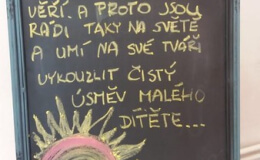 VĚŘÍ. A PROTO JSOU
RÁDI TAKY NA SVĚTĚ
A UMÍ NA SVÉ TVÁŘI
VYKOUZLIT ČISTÝ
ÚSMĚV MALÉHO
DÍTĚTE...